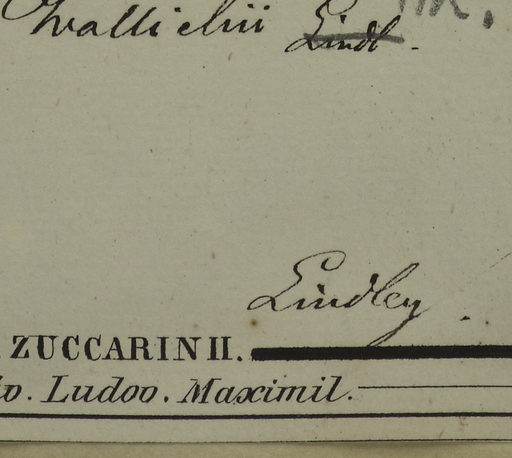 Wallichii Lindl.
Lindley.
ZUCCARINII.
Ludov. Maximil.